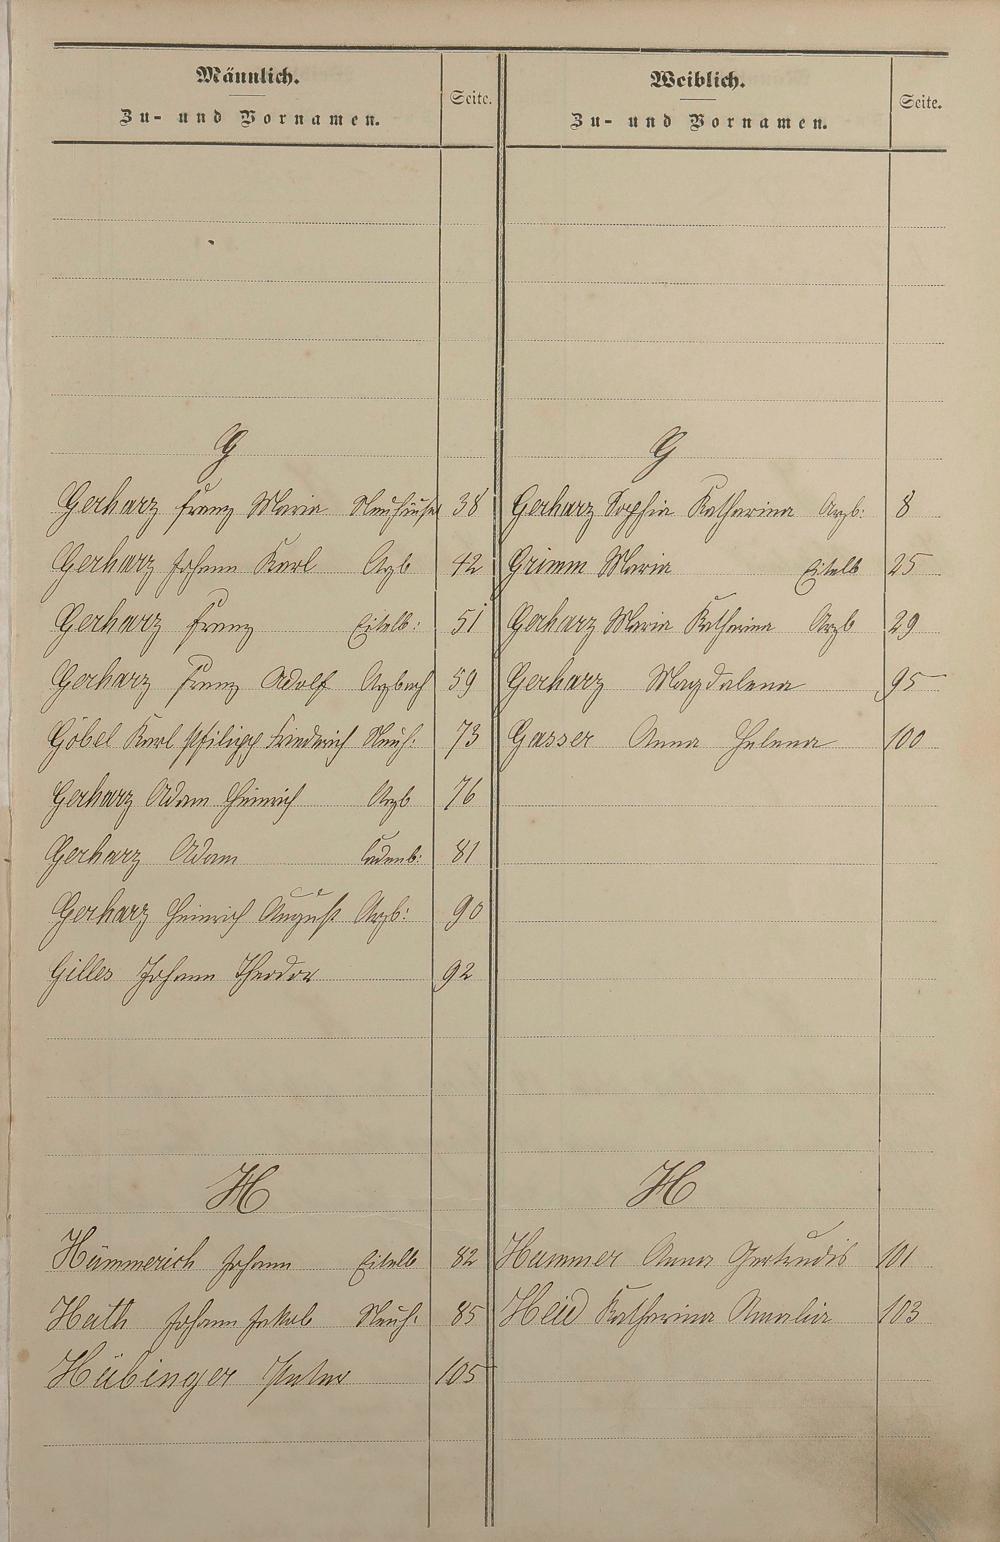 Männlich.
Zu- und Vornamen.
Seite.
G
Gerharz Franz Maria Neuhäusel 38
Gerharz Johann Karl Arzb 42
Gerharz Franz Eitelb: 51
Gerharz Franz Adolf Arzbach 59
Göbel Karl Philipp Friederich Neuh: 73
Gerharz Adam Heinrich Arzb 76
Gerharz Adam Cadenb: 81
Gerharz Heinrich August Arzb: 90
Gilles Johann Theodor 92
H
Hümmerich Johann Eitelb 82
Hath Johann Jakob Neuh: 85
Hübinger Peter 105
Weiblich.
Zu- und Vornamen.
Seite.
G
Gerharz Sophia Katharina Arzb: 8
Grimm Maria Eitelb 25
Gerharz Maria Katharina Arzb 29
Gerharz Magdalena 95
Gasser Anna Helena 100
H
Hammer Anna Gertrudis 101
Heid Katharina Amalia 103